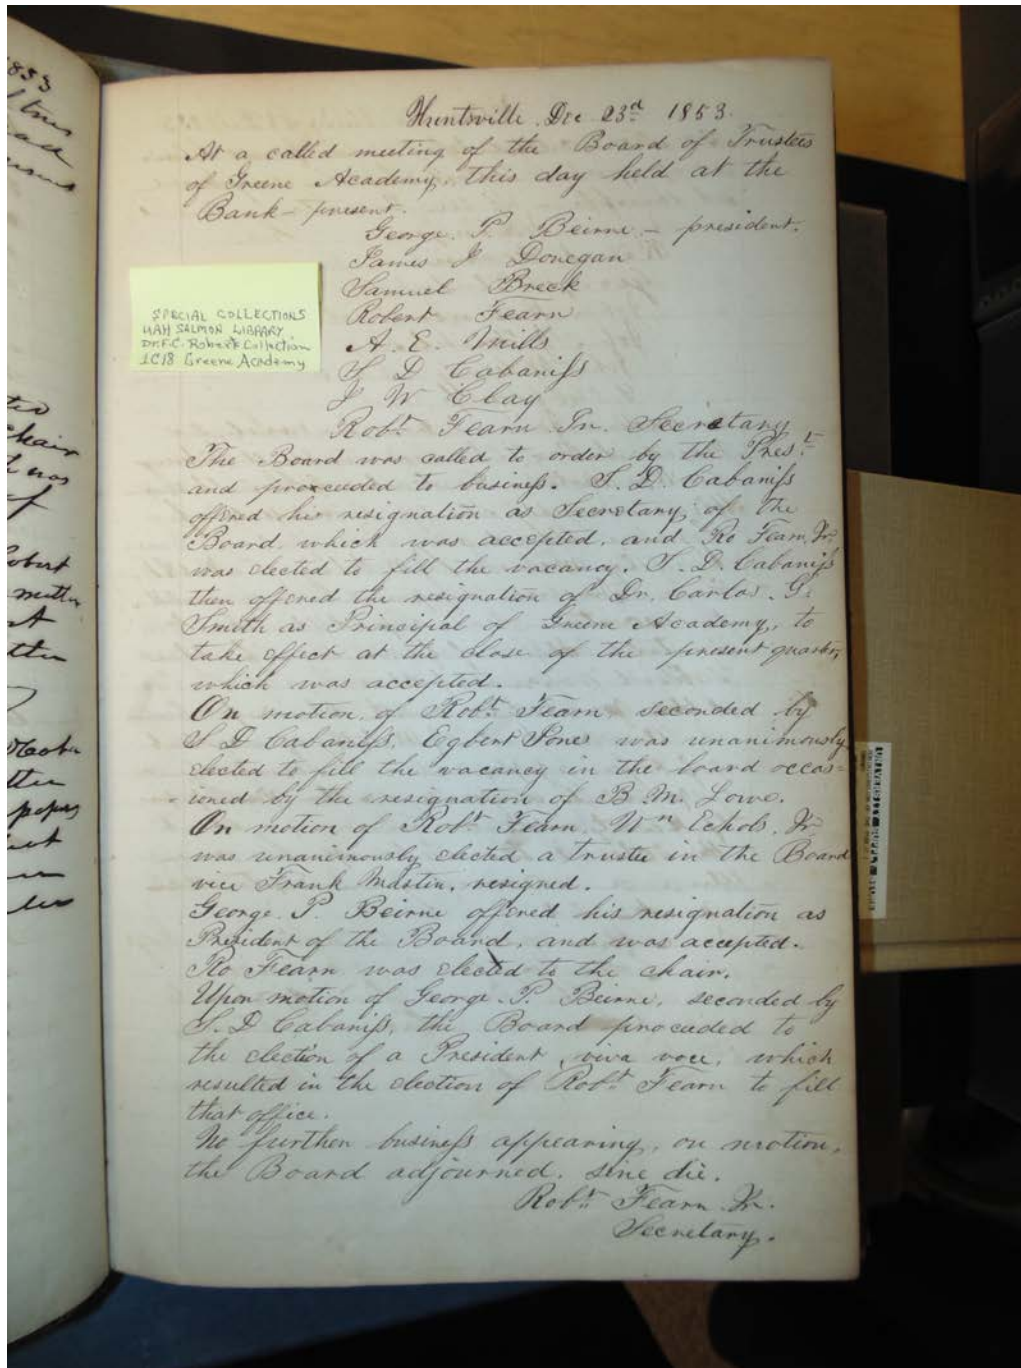 Huntsville, Dec 23d 1853.
At a called meeting of the Board of Trustees
of Greene Academy, this day held at the
Bank – present.
George. P. Beirne – president.
James J Donegan
Samuel Breck
Robert Fearn
A. E. Mills
S D Cabaniſs
J W Clay
Robt Fearn Jr. Secretary
The Board was called to order by the Prest.
and proceeded to busineſs. S. D. Cabaniſs
offered his resignation as Secretary, of the
Board, which was accepted, and Ro Fearn, Jr.
was elected to fill the vacancy. S. D. Cabaniſs
then offered the resignation of Dr. Carlos. G.
Smith as Principal of Greene Academy, to
take effect at the close of the present quarter,
which was accepted.
On motion of Robt Fearn seconded by
S D Cabaniſs, Egbert Jones was unanimously
elected to fill the vacancy in the board occas-
ioned by the resignation of B. M. Lowe.
On motion of Robt Fearn, Wm Echols, Jr
was unanimously elected a trustee in the Board
vice Frank Mastin, resigned.
George. P. Beirne offered his resignation as
President of the Board, and was accepted.
Ro Fearn was elected to the chair.
Upon motion of George. P. Beirne, seconded by
S. D Cabaniſs, the Board proceeded to
the election of a President, viva voce, which
resulted in the election of Robt Fearn to fill
that office.
No further busineſs appearing, on motion,
the Board adjourned, sine die.
Robt Fearn Jr.
Secretary.
SPECIAL COLLECTIONS
UAH SALMON LIBRARY
Dr. F.C. Roberts Collection
1C18 Greene Academy
1853
chair
was
of
Robert